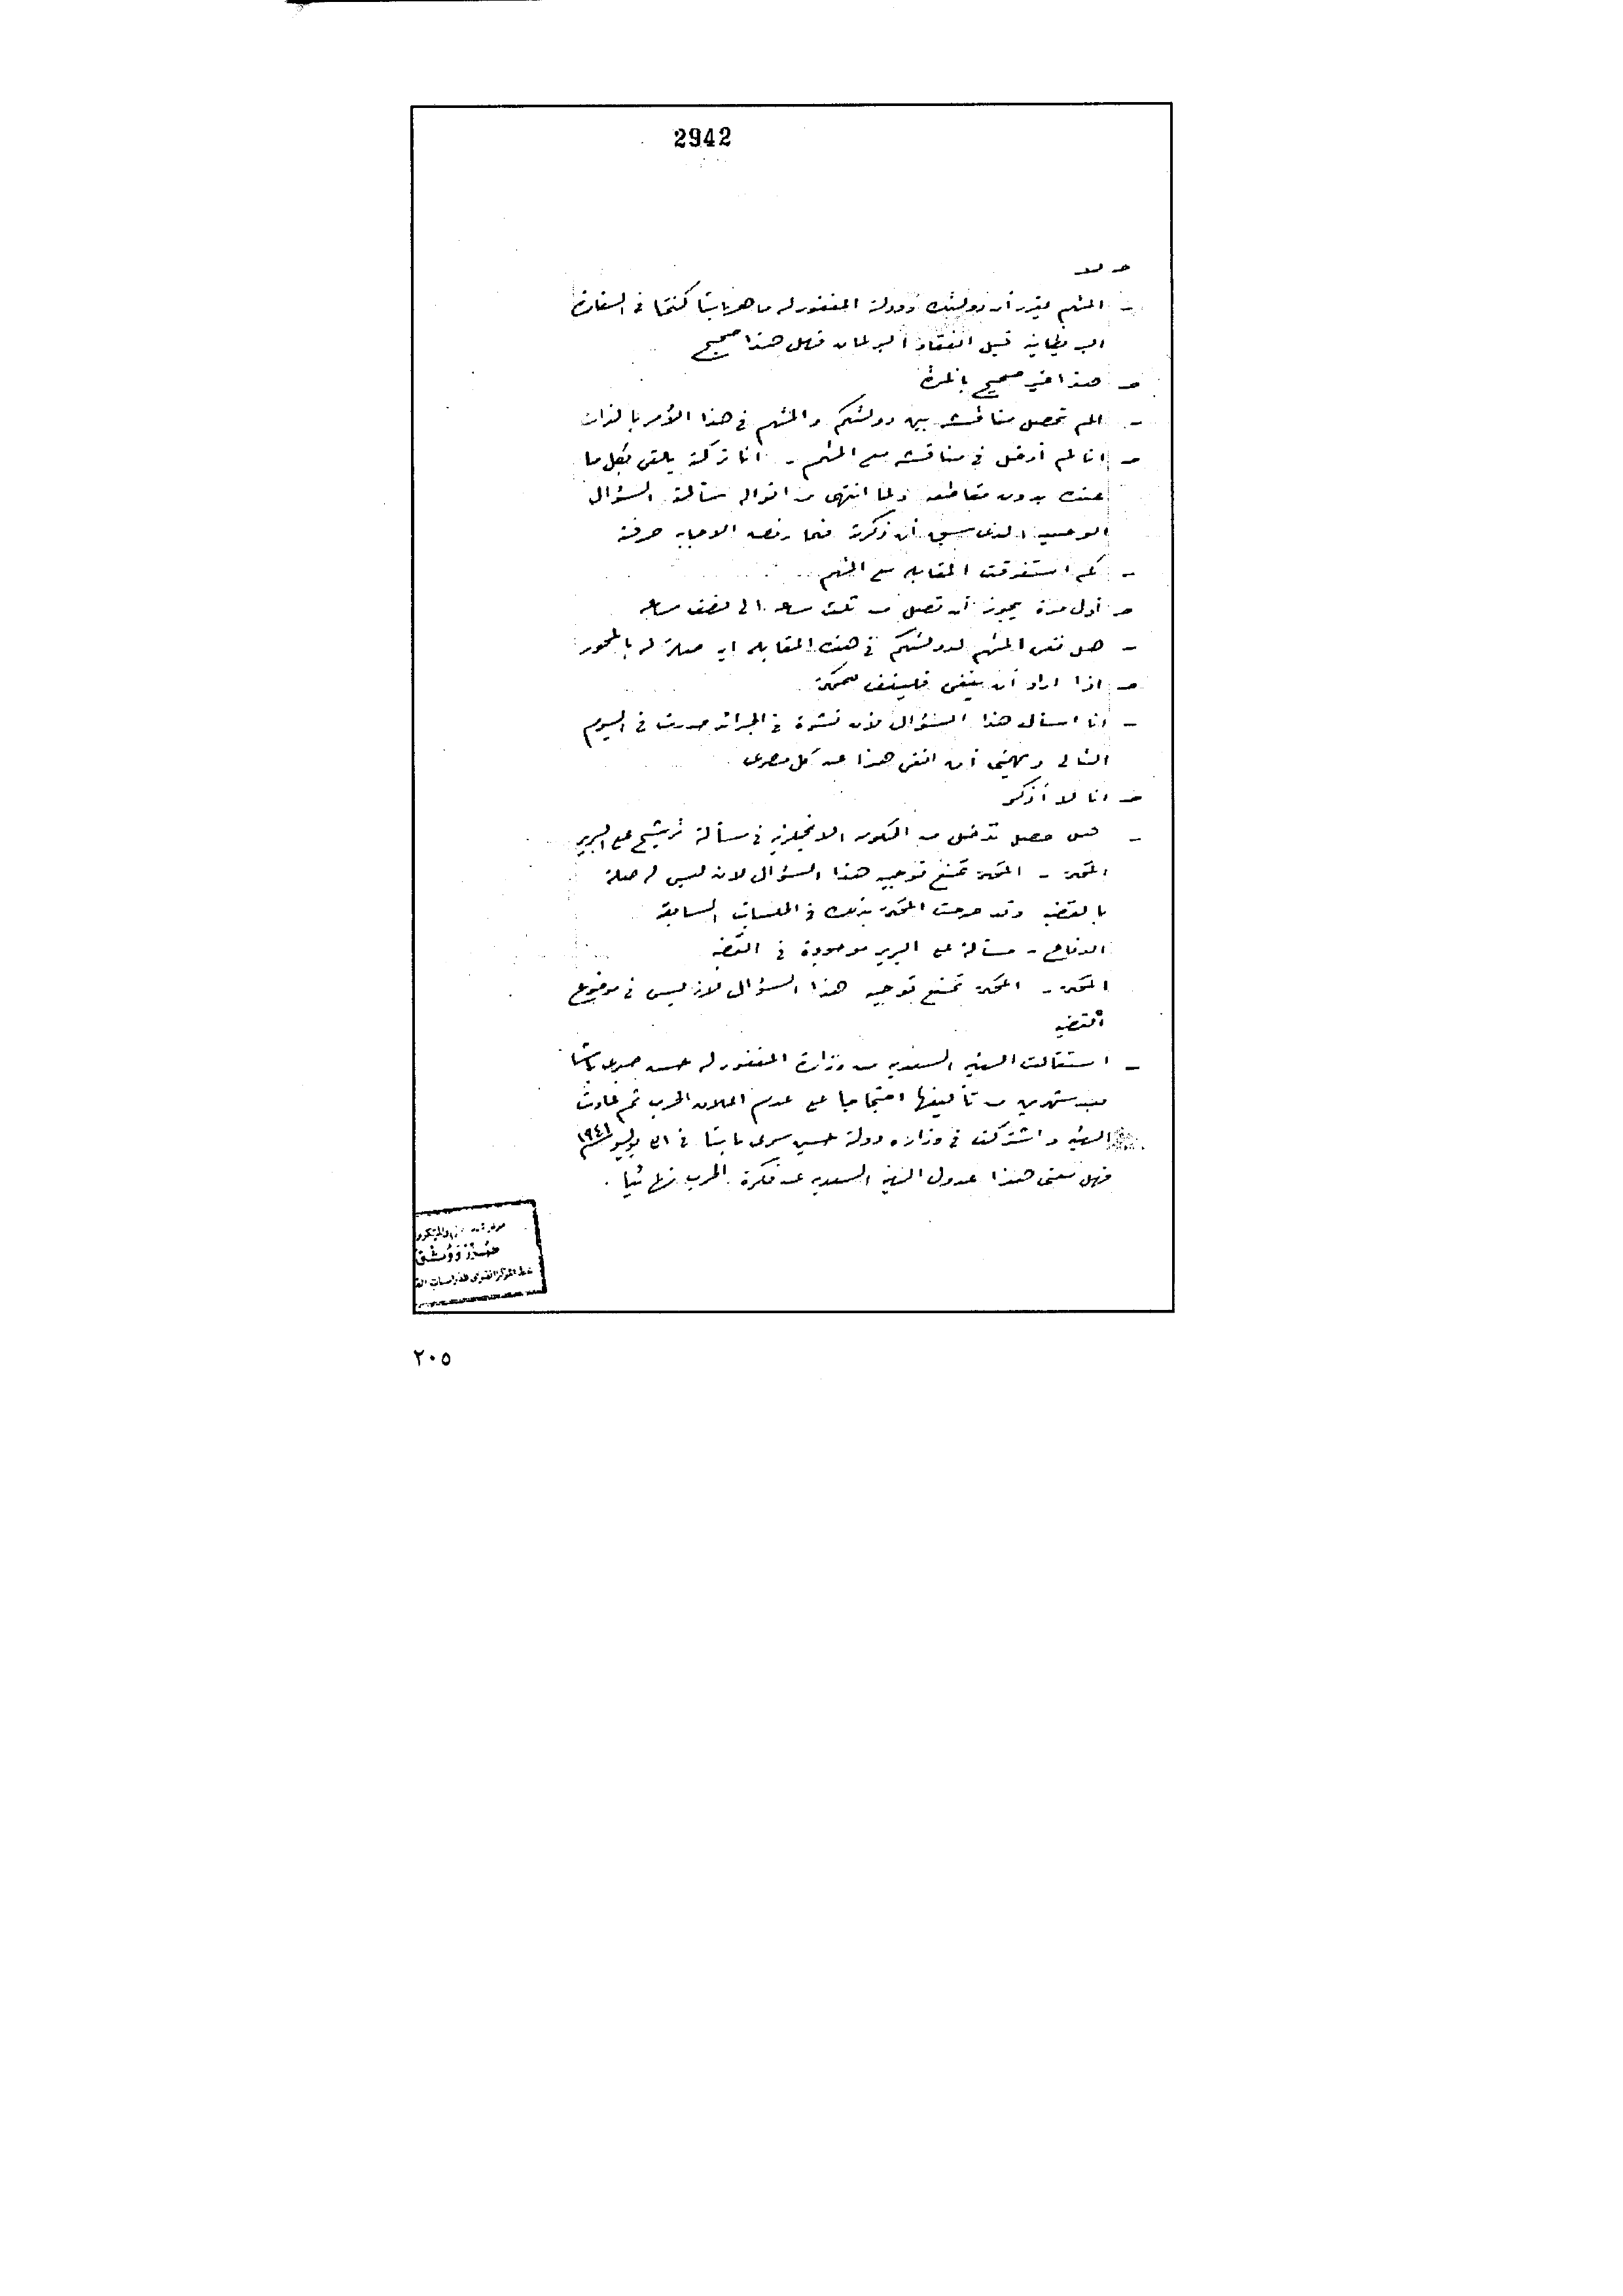 2942
ـ لا
ـ المتهم يقرر أن دولتك ودولة المغفور له ماهر باشا كنتما فى السفارة
البريطانية قبل انعقاد البرلمان فهل هذا صحيح
ـ هذا غير صحيح بالمرة
ـ الم تحصل مناقشة بين دولتكم والمتهم فى هذا الأمر بالذات
ـ انا لم أدخل فى مناقشة مع المتهم ـ انا تركته يلقى بكل ما
عنده بدون مقاطعه ولما انتهى من اقواله سألته السؤال
الوحيد الذى سبق أن ذكرته فلما رفض الاجابه صرفته
ـ كم استغرقت المقابله مع المتهم
ـ أول مرة يجوز أن تصل من ثلث ساعه الى نصف ساعه
ـ هل نفى المتهم لدولتكم فى هذه المقابله اى صلة له بالمحور
ـ اذا اراد أن ينفى فلينف للمحكمة
ـ انا اسأل هذا السؤال لأن نشرة فى الجرائد صدرت فى اليوم
التالى ويهمنى أن انفى هذا عن كل مصرى
ـ انا لا أذكر
ـ هل حصل تدخل من الحكومه الانجليزيه فى مسألة ترشيح على البرير
المحكمة ـ المحكمة تمنع توجيه هذا السؤال لانه ليس له صلة
بالقضيه وقد صرحت المحكمة بذلك فى الجلسات السابقة
الدفاع ـ مسألة على البرير موجودة فى القضيه
المحكمة ـ المحكمة تمنع توجيه هذا السؤال لانه ليس فى موضوع
القضيه
ـ استقالت الهيئه السعديه من وزارة المغفور له حسن صبرى باشا
بعد شهرين من تأليفها احتجاجا على عدم اعلان الحرب ثم عادت
الهيئه واشتركت فى وزاره دولة حسين سرى باشا فى ٣١ يوليو سنة ١٩٤١
فهل معنى هذا عدول الهيئه السعديه عن فكرة الحرب نهائيا .
٢٠٥